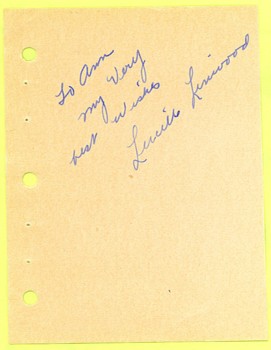 To Ann
My Very
best Wishes
Lucille Linwood